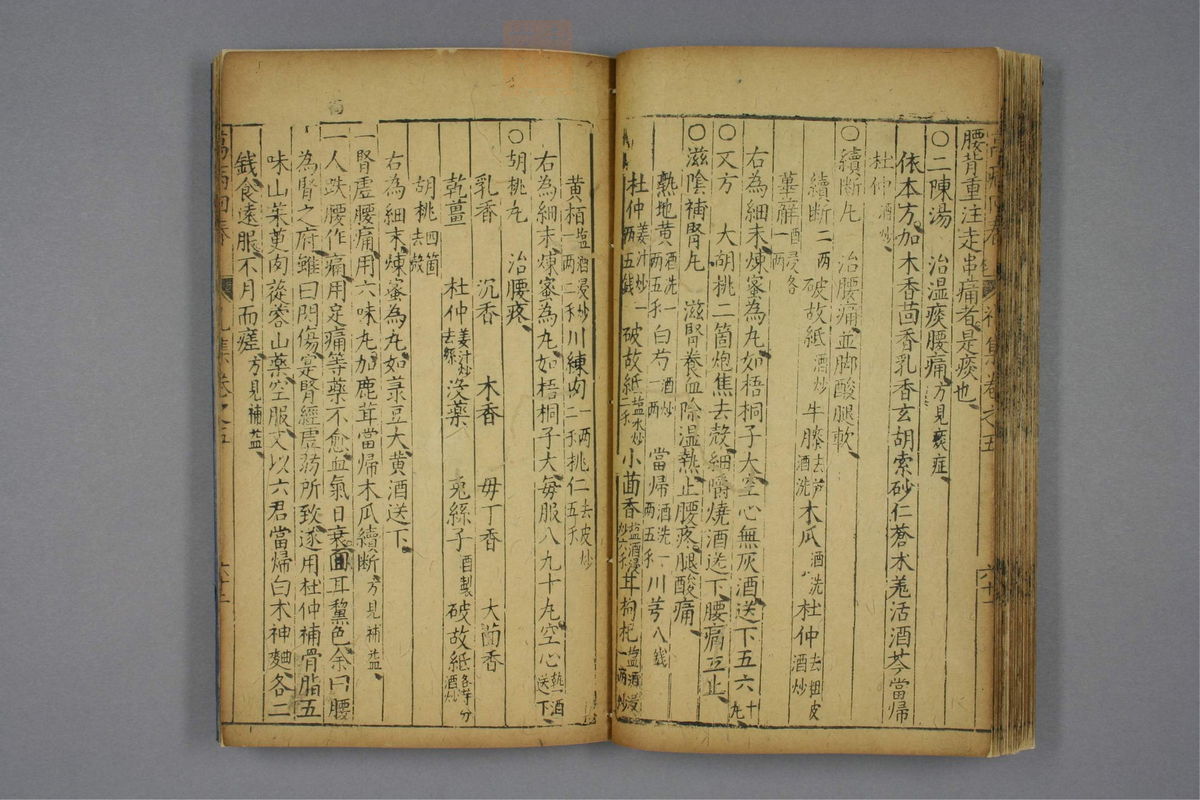 腰背重注走串痛者是痰也
○二陳湯 治濕痰腰痛方見痰症
依本方加木香茴香乳香玄胡索砂仁蒼朮羗活酒芩當歸
杜仲酒炒
○續斷丸 治腰痛並脚酸腿軟
續斷二兩 破故紙酒炒 牛膝去芦酒洗 木瓜酒洗 杜仲去粗皮酒炒
萆薢酒浸各一兩
右為細末煉蜜為丸如梧桐子大空心無灰酒送下五六十丸
○又方 大胡桃二箇炮焦去殼細嚼燒酒送下腰痛立止
○滋陰補腎丸 滋腎養血除濕熱止腰疼腿酸痛
熟地黄酒洗一兩五錢 白芍酒炒一兩 當歸酒洗一兩五錢 川芎八錢
杜仲姜汁炒一兩五錢 破故紙塩水炒一錢 小茴香塩酒浸炒六錢 甘枸杞塩酒浸炒一兩
黄栢塩酒浸炒一兩二錢 川練肉一兩二錢 桃仁去皮炒五錢
右為細末煉蜜為丸如梧桐子大每服八九十丸空心熱酒送下
○胡桃丸 治腰疼
乳香 沉香 木香 毋丁香 大茴香
乾薑 杜仲姜汁炒去絲 沒藥 兎絲子酒製 破故紙各等分酒炒
胡桃四箇去殼
右為細末煉蜜為丸如菉豆大黄酒送下
一腎虛腰痛用六味丸加鹿茸當歸木瓜續斷方見補益
一人跌腰作痛用定痛等藥不愈血氣日衰面耳黧色余曰腰
為腎之府雖曰閃傷寔腎經虛弱所致遂用杜仲補骨脂五
味山茱萸肉蓯蓉山藥空服又以六君當歸白朮神麯各二
錢食遠服不月而瘥方見補益